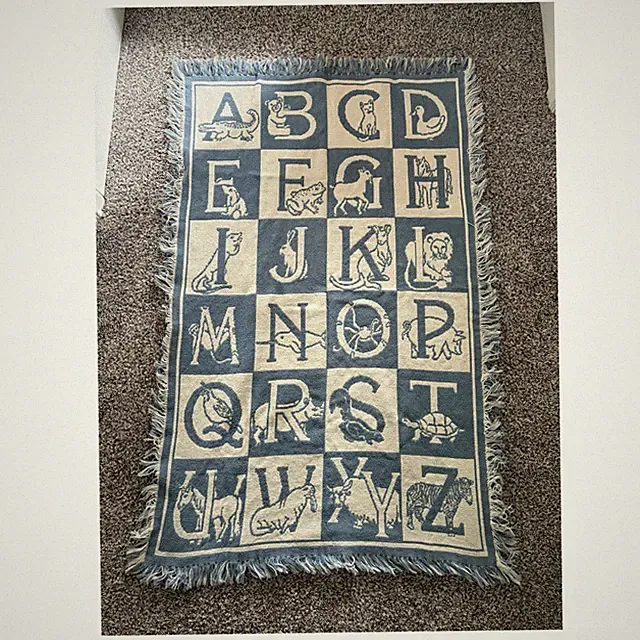 A B C D
E F G H
I J K L
M N O P
Q R S T
UV W XY Z